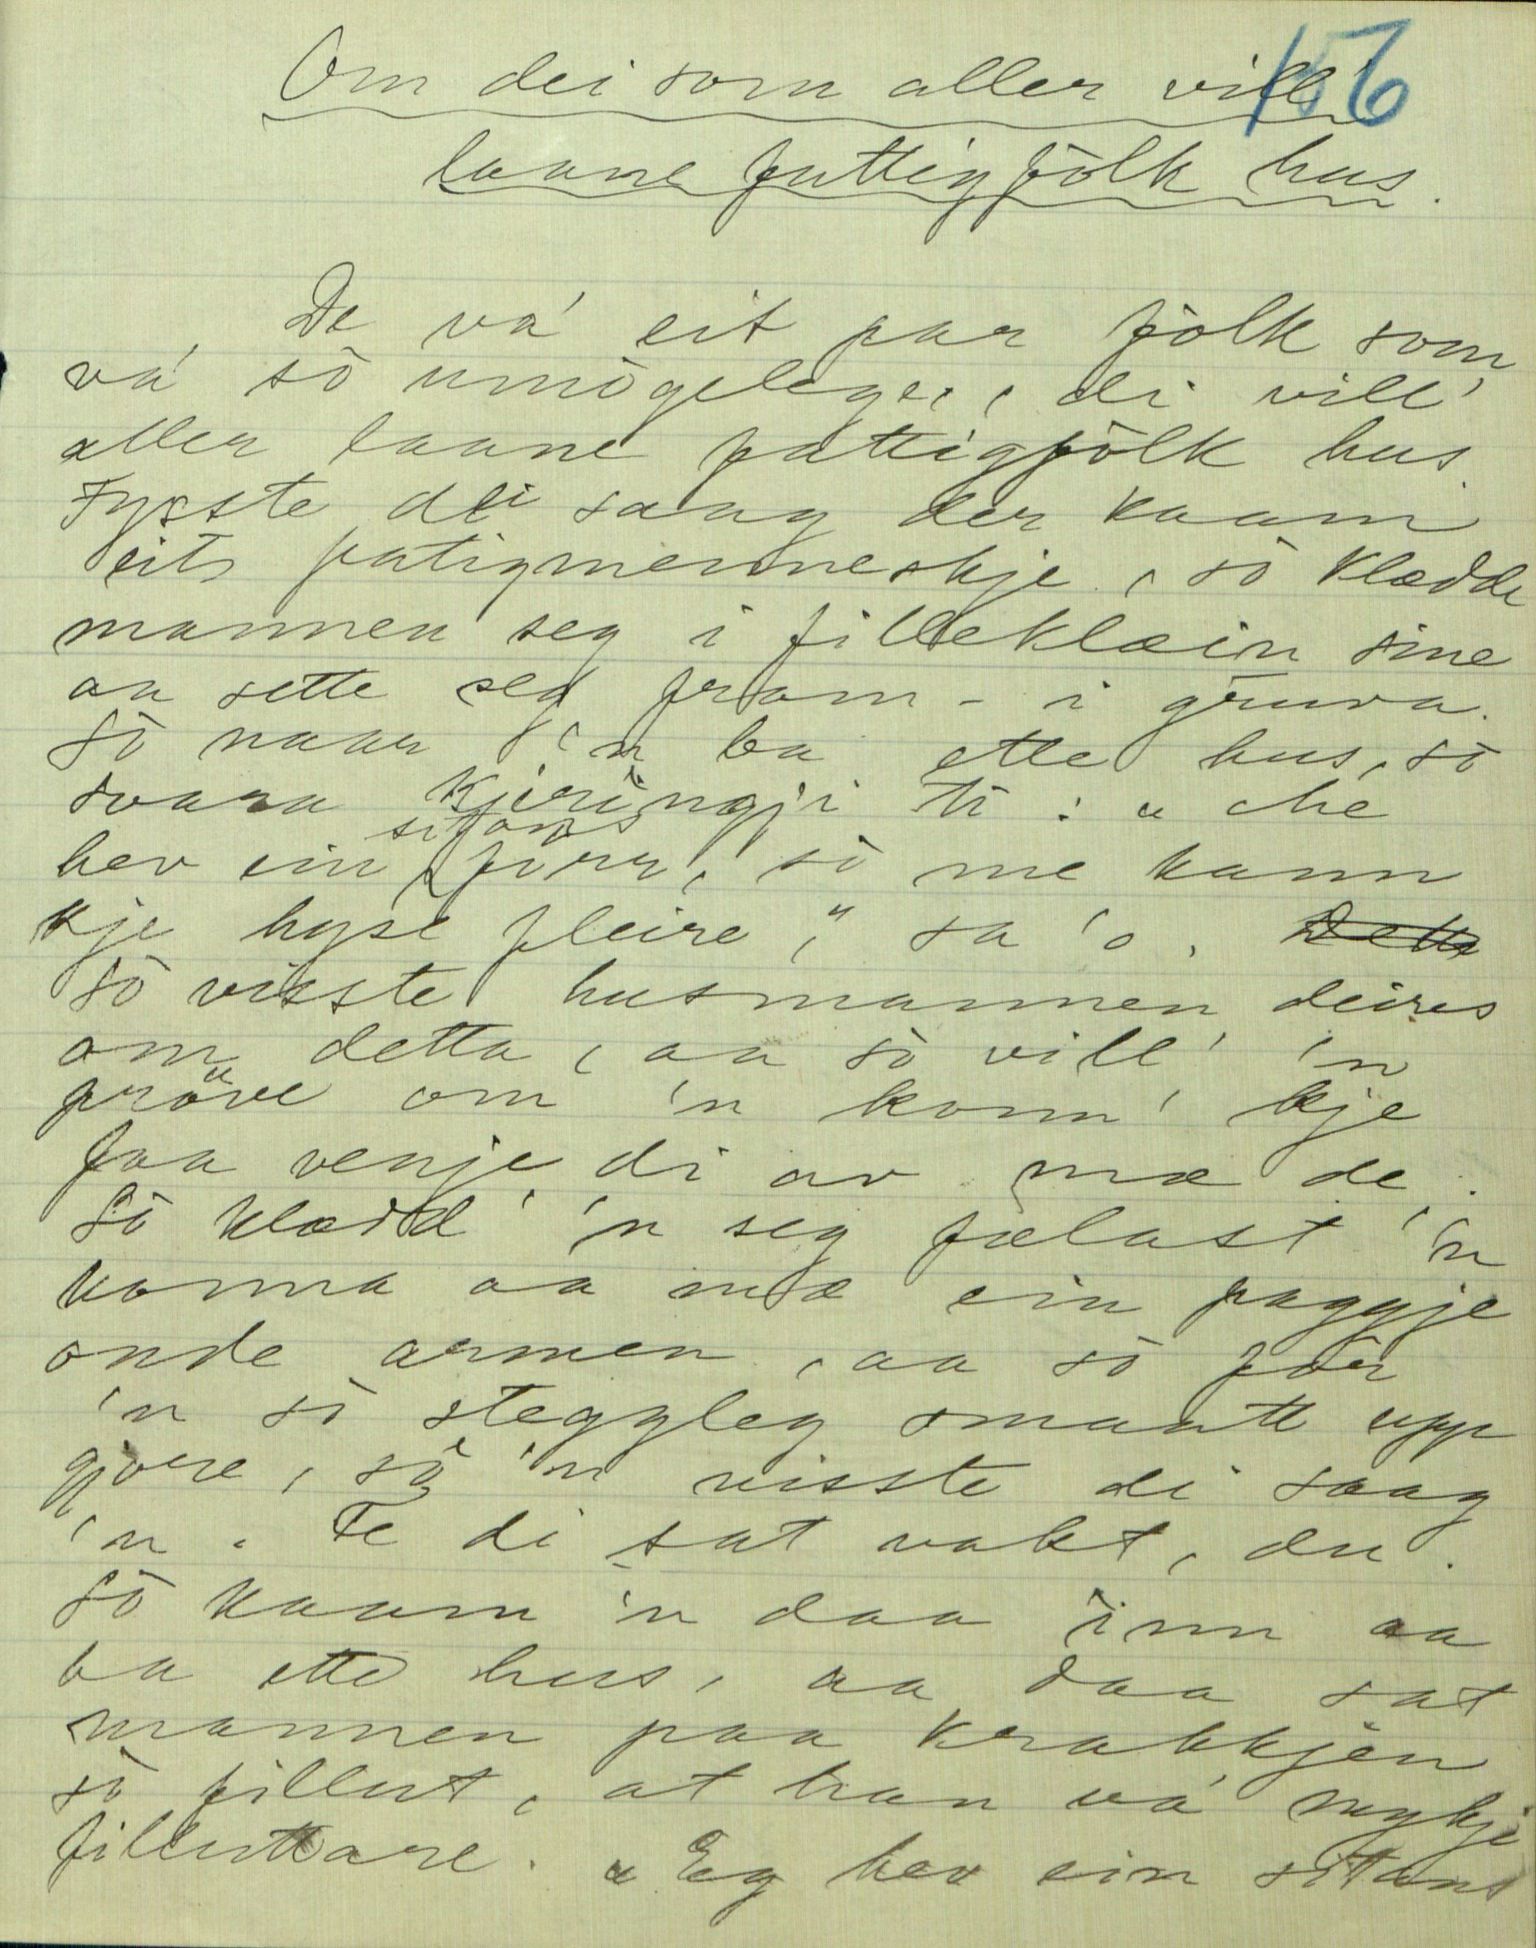 156
Om dei som aller vill'
laane fattigfólk hus.
De va' eit par fólk som
va' só umògelege, di vill'
aller laane fattigfólk hus.
Fysste dei saag der kaam
eit fatigmenneskje, só klædde
mannen seg i filleklæin sine
aa sette seg fram-i gruva.
Só naar 'n ba ette hus, só
svara kjeringji ti: "Me
hev ein sitans fórr, só me kann
kje hyse fleire," sa 'o. Detta
Só visste husmannen deires
om detta, aa só vill' 'n
pröve om 'n konn' kje
faa venje di av mæ de.
Só klædd' 'n seg fælast 'n
konna aa mæ ein paggje
onde armen, aa só fór
'n só steggleg smantt upp-
gjere, só 'n visste di saag
'n. Fe di sat vakt, du.
Só kaam 'n daa inn aa
ba ette hus, aa daa sat
mannen paa krakkjen
só fillut, at han va' mykje
filluttare. "Eg hev ein sitans